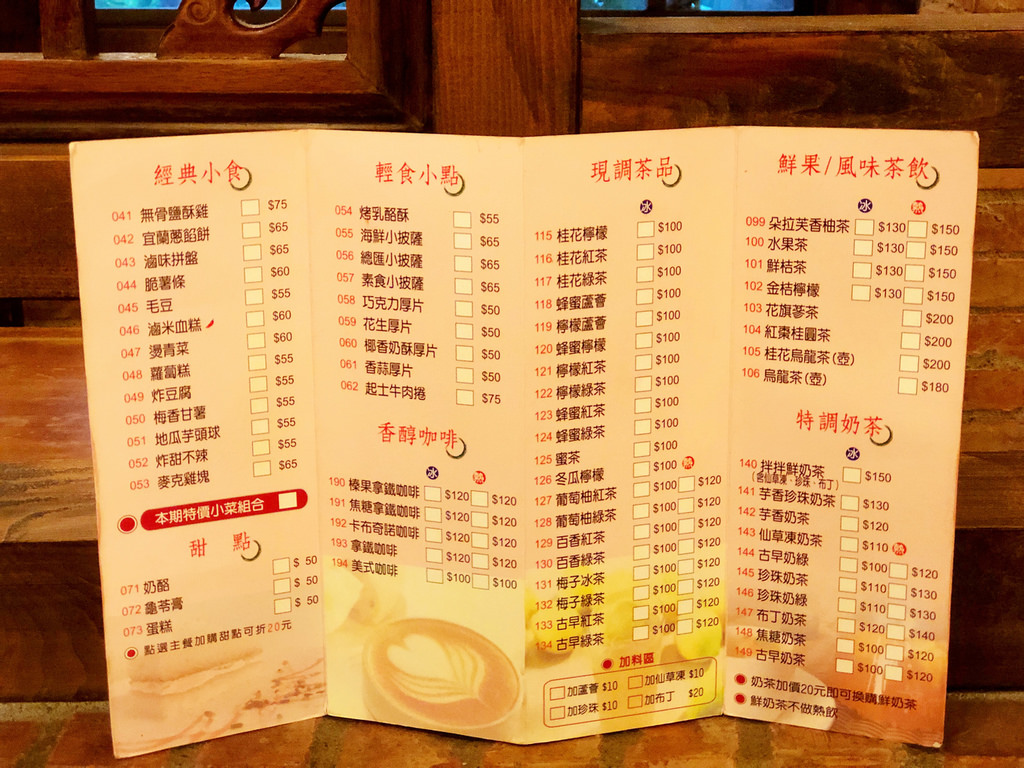 經典小食
041 無骨鹽酥雞 $75
042 宜蘭蔥餡餅 $65
043 滷味拼盤 $65
044 脆薯條 $60
045 毛豆 $55
046 滷米血糕 $60
047 燙青菜 $60
048 蘿蔔糕 $55
049 炸豆腐 $55
050 梅香甘薯 $55
051 地瓜芋頭球 $55
052 炸甜不辣 $55
053 麥克雞塊 $65
本期特價小菜組合
甜 點
071 奶酪 $ 50
072 龜苓膏 $ 50
073 蛋糕 $ 50
點選主餐加購甜點可折20元
輕食小點
054 烤乳酪酥 $55
055 海鮮小披薩 $65
056 總匯小披薩 $65
057 素食小披薩 $65
058 巧克力厚片 $50
059 花生厚片 $50
060 椰香奶酥厚片 $50
061 香蒜厚片 $50
062 起士牛肉捲 $75
香醇咖啡
冰 熱
190 榛果拿鐵咖啡 $120 $120
191 焦糖拿鐵咖啡 $120 $120
192 卡布奇諾咖啡 $120 $120
193 拿鐵咖啡 $120 $120
194 美式咖啡 $100 $100
現調茶品
冰
115 桂花檸檬 $100
116 桂花紅茶 $100
117 桂花綠茶 $100
118 蜂蜜蘆薈 $100
119 檸檬蘆薈 $100
120 蜂蜜檸檬 $100
121 檸檬紅茶 $100
122 檸檬綠茶 $100
123 蜂蜜紅茶 $100
124 蜂蜜綠茶 $100
125 蜜茶 $100
熱
126 冬瓜檸檬 $100 $120
127 葡萄柚紅茶 $100 $120
128 葡萄柚綠茶 $100 $120
129 百香紅茶 $100 $120
130 百香綠茶 $100 $120
131 梅子冰茶 $100 $120
132 梅子綠茶 $100 $120
133 古早紅茶 $100 $120
134 古早綠茶 $100 $120
加料區
加蘆薈 $10 加仙草凍 $10
加珍珠 $10 加布丁 $20
鮮果/風味茶飲
冰 熱
099 朵拉芙香柚茶 $130 $150
100 水果茶 $130 $150
101 鮮桔茶 $130 $150
102 金桔檸檬 $130 $150
103 花旗蔘茶 $200
104 紅棗桂圓茶 $200
105 桂花烏龍茶(壺) $200
106 烏龍茶(壺) $180
特調奶茶
冰
140 拌拌鮮奶茶 $150
(含仙草凍、珍珠、布丁)
141 芋香珍珠奶茶 $130
142 芋香奶茶 $120
143 仙草凍奶茶 $110 熱
144 古早奶綠 $100 $120
145 珍珠奶茶 $110 $130
146 珍珠奶綠 $110 $130
147 布丁奶茶 $120 $140
148 焦糖奶茶 $100 $120
149 古早奶茶 $100 $120
奶茶加價20元即可換購鮮奶茶
鮮奶茶不做熱飲